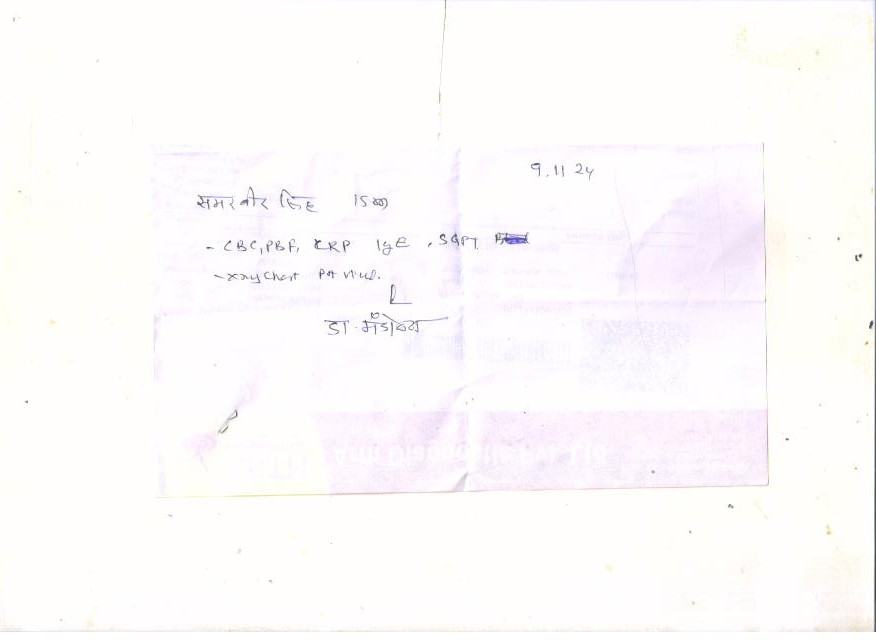 9.11 24
समरवीर सिंह 15
- CBC, PBF, CRP IgE, SGPT
- xray Chest PA view.
डा.